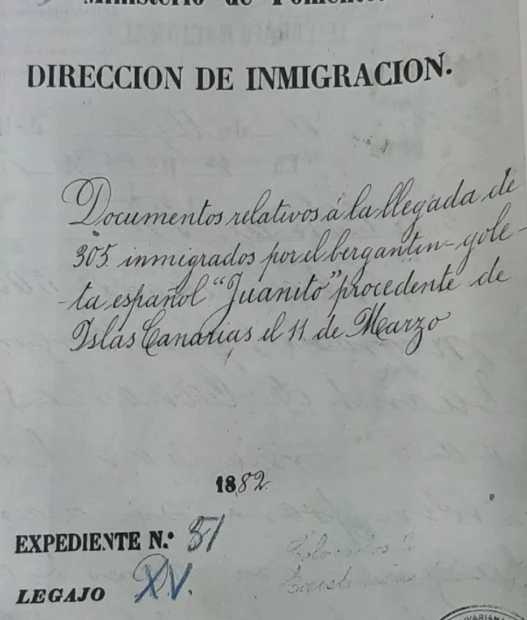 Ministerio de Fomento.
DIRECCION DE INMIGRACION.
Documentos relativos á la llegada de
305 inmigrados por el bergantin-gole-
-ta español "Juanito" procedente de
Islas Canarias el 11 de Marzo
1882
EXPEDIENTE N.º 51
LEGAJO XV.